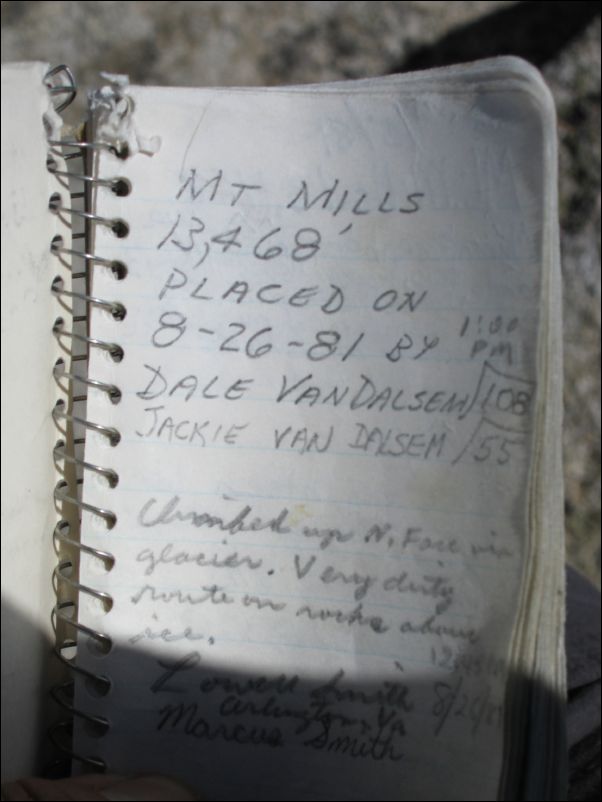 MT MILLS
13,468'
PLACED ON
8-26-81 BY 1:00 PM
DALE VANDALSEM /108
JACKIE VAN DALSEM /55
Climbed up N. Face via
glacier. Very dirty
route on rocks above
ice.
Lowell Smith 8/26/
Arlington, Va
Marcus Smith